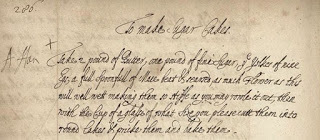 286
To make Sugar Cakes.
Take 2 pound of Butter, one pound of fine Sugar, ye yolkes of nine
Egs, a full Spoonfull of Mace beat & searsed as much Flower as this
will well wett making them so stiffe as you may rowle it out, then
with the Cup of a glasse of what Size you please cutt them into
round Cakes & pricke them and bake them.